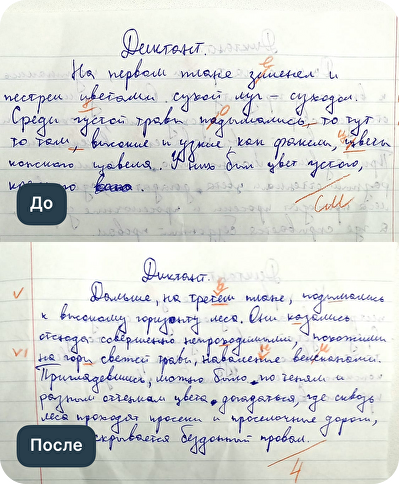 Диктант.
На первом плане зеленел и
пестрел цветами сухой луг – суходол.
Среди густой травы подымались то тут
то там высокие и узкие, как факелы, цвесы
конского щавеля. У них был цвет густого,
До
Диктант.
Дальше, на третем плане, подымались
к высокому горизонту леса. Они казались
отсюда совершенно непроходимыми, похожими
на горы свежей травы, наваленные великанами.
Приглядевшись, можно было по теням и
разным оттенкам цвета догадаться, где сквозь
леса проходят просеки и проселочные дороги,
скрывается бездонный провал.
4
После